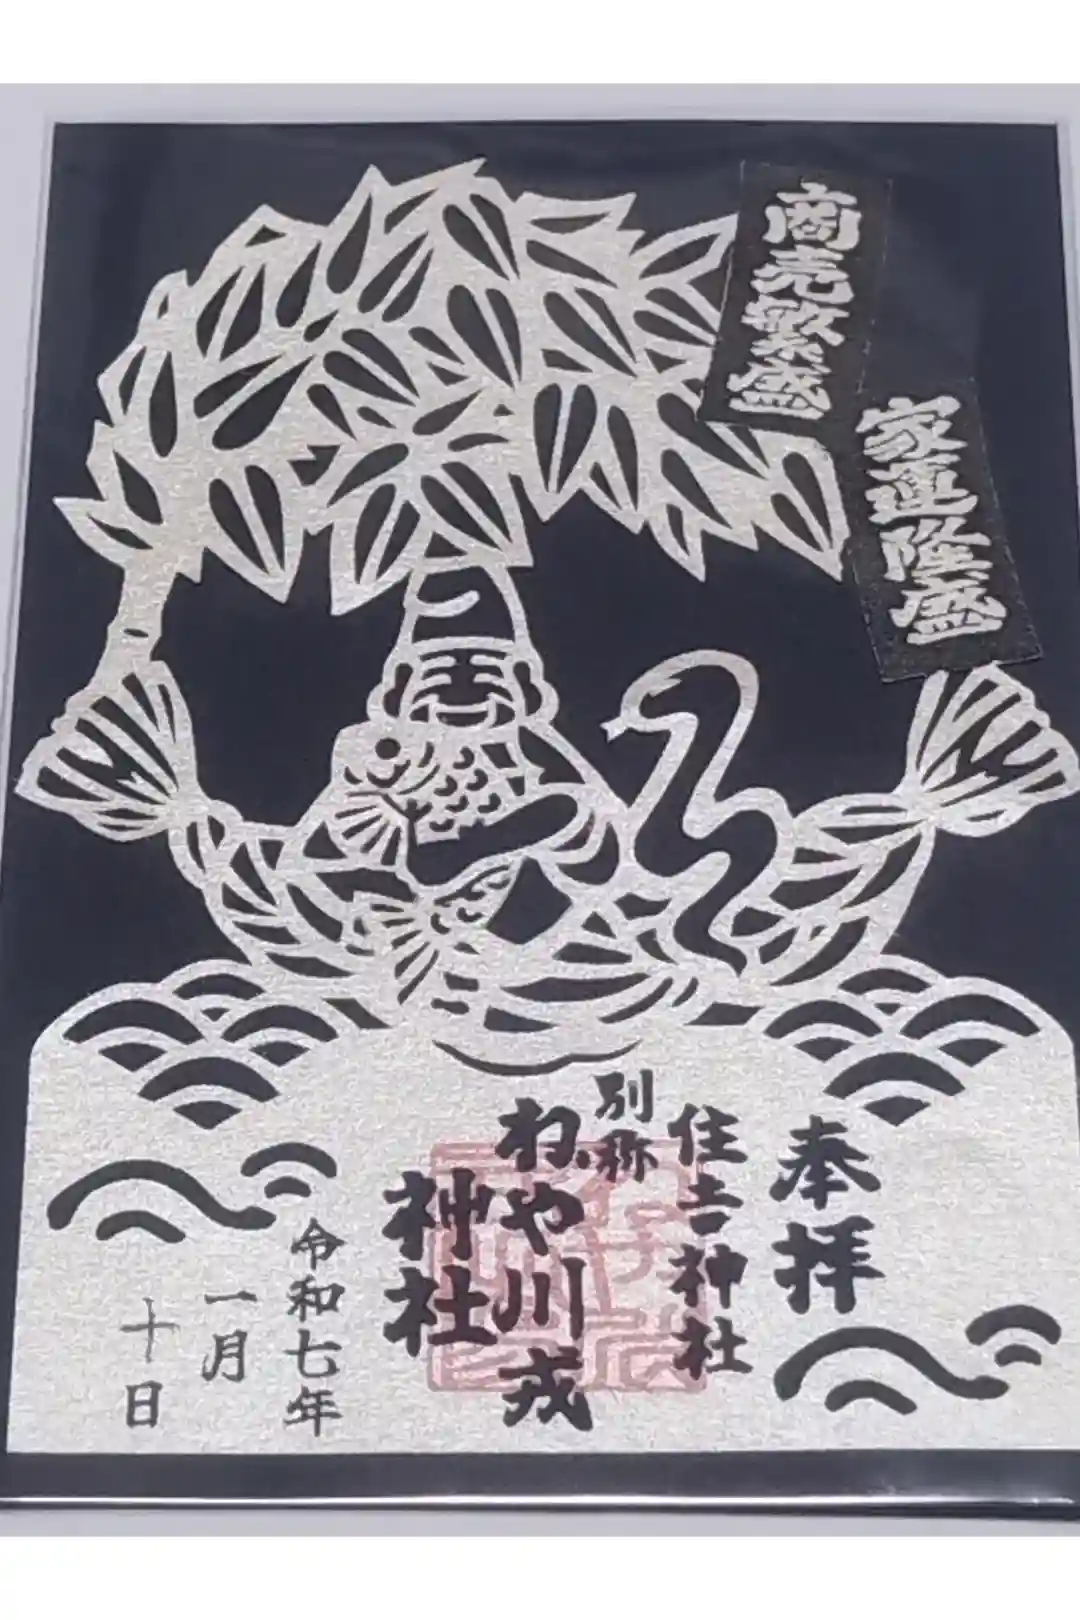 商売繁盛
家運隆盛
奉拝
住吉神社
別称
ねや川戎
神社
令和七年
一月
十日